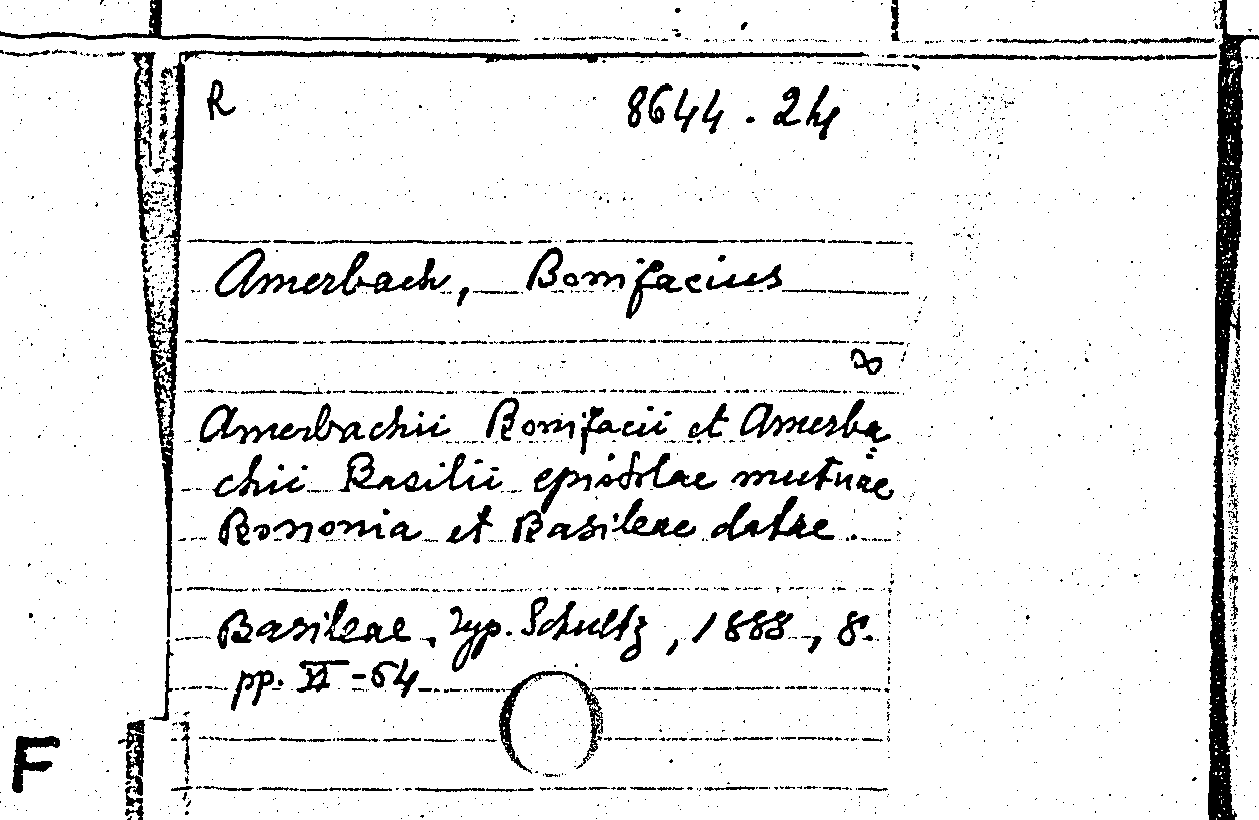 R 8644.24
Amerbach, Bonifacius
∞
Amerbachii Bonifacii et Amerba
chii Basilii epistolae mutuae
Bononia et Basileae datae.
Basileae, Typ. Schultz, 1888, 8.
pp. VI-64
F